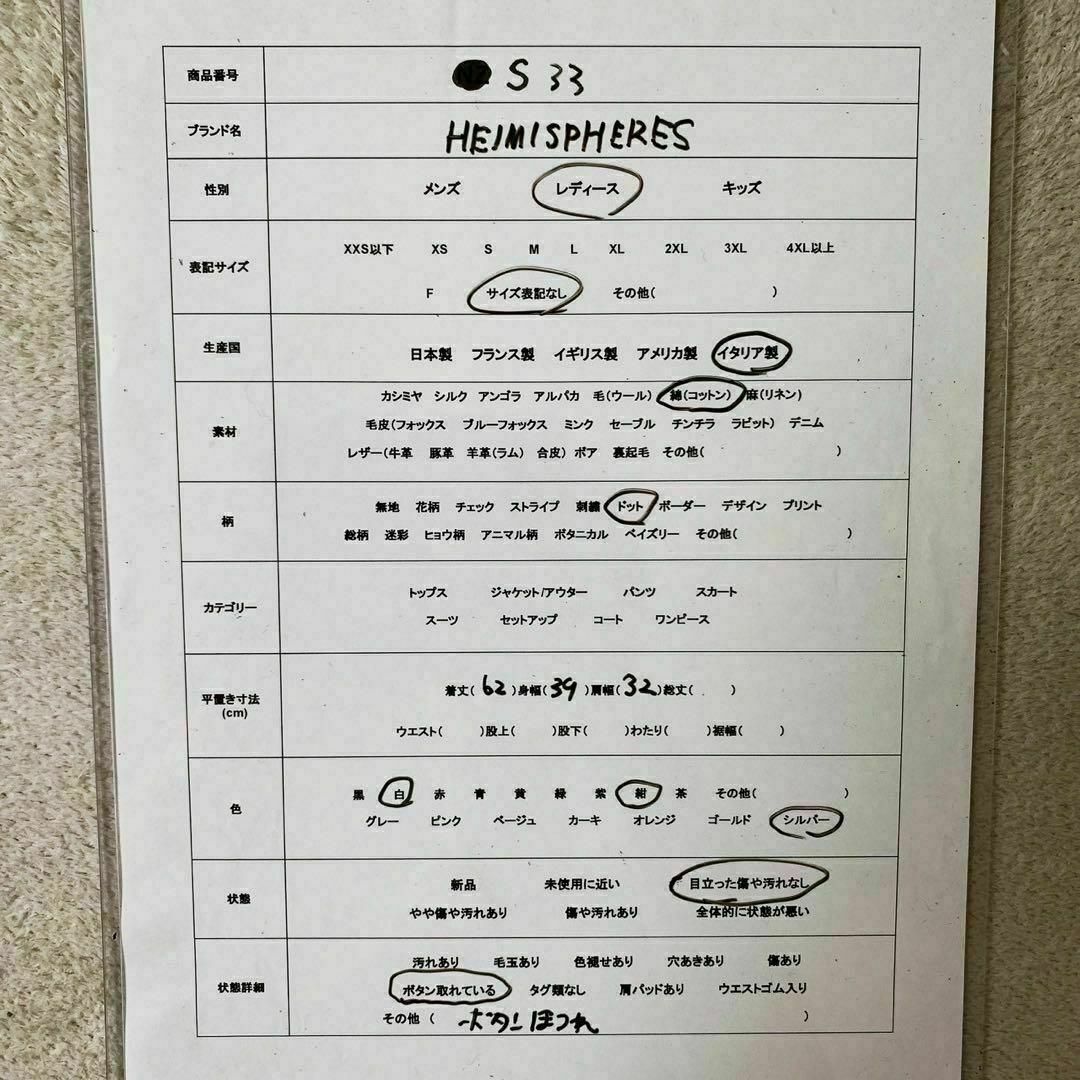 商品番号 S 33
ブランド名 HEIMISPHERES
性別 メンズ レディース キッズ
XXS以下 XS S M L XL 2XL 3XL 4XL以上
表記サイズ
F サイズ表記なし その他( )
生産国 日本製 フランス製 イギリス製 アメリカ製 イタリア製
カシミヤ シルク アンゴラ アルパカ 毛(ウール) 綿(コットン) 麻(リネン)
素材 毛皮(フォックス ブルーフォックス ミンク セーブル チンチラ ラビット) デニム
レザー(牛革 豚革 羊革(ラム) 合皮) ボア 裏起毛 その他( )
無地 花柄 チェック ストライプ 刺繍 ドット ボーダー デザイン プリント
柄
総柄 迷彩 ヒョウ柄 アニマル柄 ボタニカル ペイズリー その他( )
トップス ジャケット/アウター パンツ スカート
カテゴリー
スーツ セットアップ コート ワンピース
着丈( 62 )身幅( 39 )肩幅( 32 )総丈( )
平置き寸法
(cm)
ウエスト( )股上( )股下( )わたり( )裾幅( )
黒 白 赤 青 黄 緑 紫 紺 茶 その他( )
色
グレー ピンク ベージュ カーキ オレンジ ゴールド シルバー
新品 未使用に近い 目立った傷や汚れなし
状態
やや傷や汚れあり 傷や汚れあり 全体的に状態が悪い
汚れあり 毛玉あり 色褪せあり 穴あきあり 傷あり
状態詳細 ボタン取れている タグ類なし 肩パッドあり ウエストゴム入り
その他 ( ほつれ )